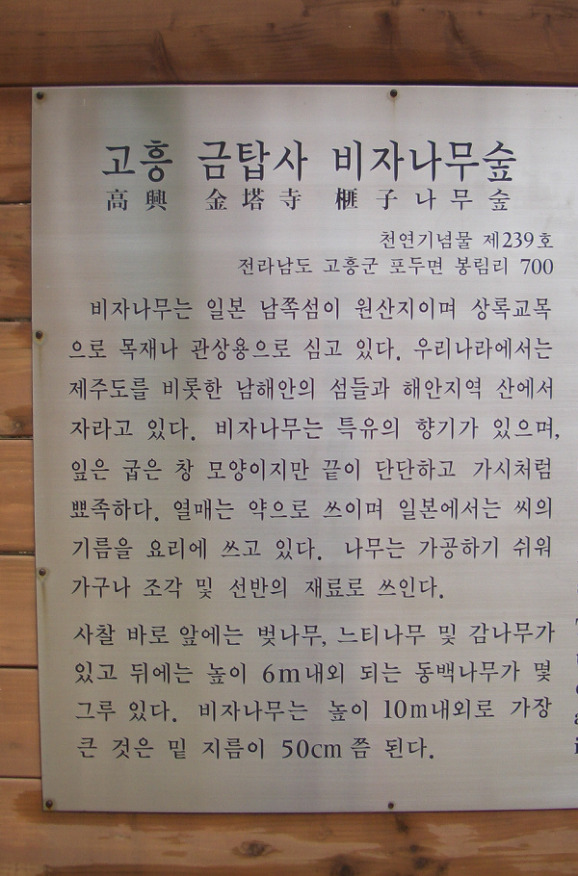 고흥 금탑사 비자나무숲
高興 金塔寺 榧子나무숲
천연기념물 제239호
전라남도 고흥군 포두면 봉림리 700
비자나무는 일본 남쪽섬이 원산지이며 상록교목
으로 목재나 관상용으로 심고 있다. 우리나라에서는
제주도를 비롯한 남해안의 섬들과 해안지역 산에서
자라고 있다. 비자나무는 특유의 향기가 있으며,
잎은 굽은 창 모양이지만 끝이 단단하고 가시처럼
뾰족하다. 열매는 약으로 쓰이며 일본에서는 씨의
기름을 요리에 쓰고 있다. 나무는 가공하기 쉬워
가구나 조각 및 선반의 재료로 쓰인다.
사찰 바로 앞에는 벚나무, 느티나무 및 감나무가
있고 뒤에는 높이 6m내외 되는 동백나무가 몇
그루 있다. 비자나무는 높이 10m내외로 가장
큰 것은 밑 지름이 50cm 쯤 된다.